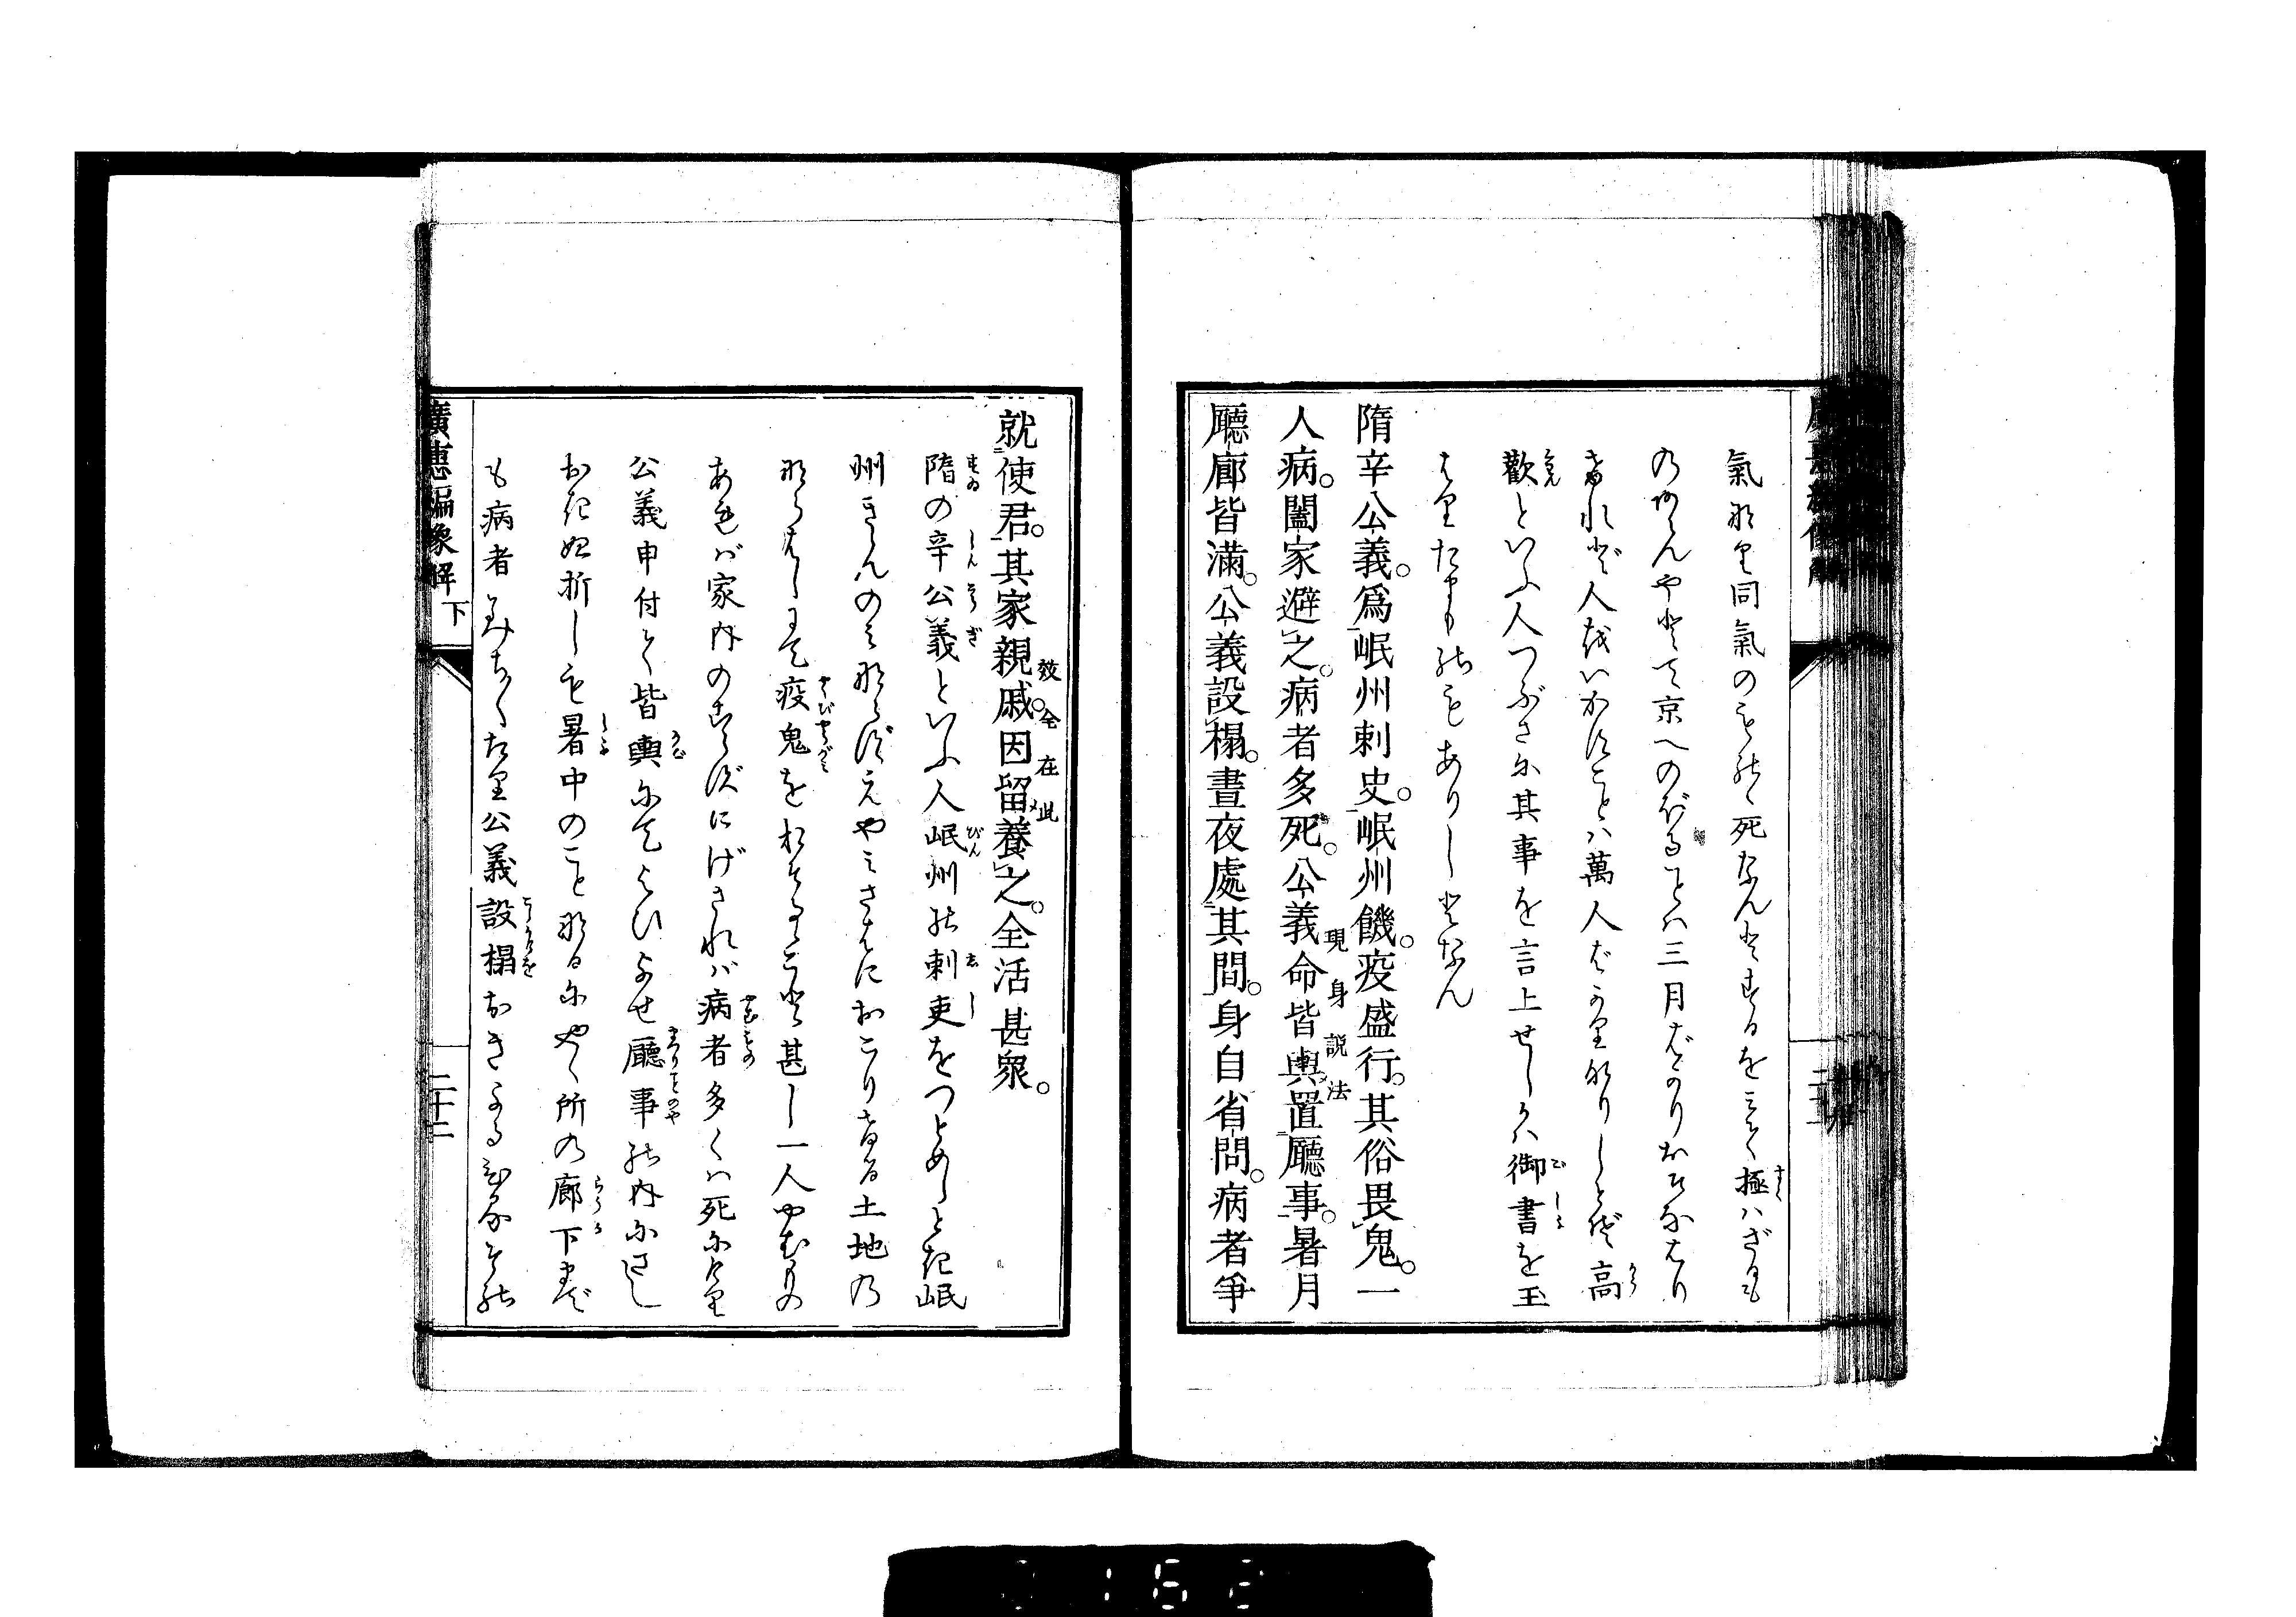 氣なり同氣のもの死なんとするを見て極ハざるも
のあらんやとて京へのぼることハ三月ばかりおそなはり
けれど人をいかすことハ萬人ばかりなりしとぞ高
歡といふ人つぶさに其事を言上せしかハ御書を玉
はりたまものもありしとなん
隋辛公義。爲岷州刺史。岷州饑。疫盛行。其俗畏鬼。一
人病。闔家避之。病者多死。公義命皆輿置廳事。暑月
現身説法
廳廊皆滿。公義設榻。晝夜處其間。身自省問。病者爭
就使君。其家親戚。因留養之。全活甚衆。
效全在此
隋の辛公義といふ人岷州の刺吏をつとめしとき岷
州きゝんのみならずえやみさへにおこりける土地の
ならはしにて疫鬼をおそるゝこと甚し一人やむもの
あれバ家内のこらずにげさればバ病者多くハ死にけり
公義申付て皆輿にてよひよせ廳事の内にさし
おきぬ折しも暑中のことなるにやく所の廊下まで
も病者みちみちたり公義設榻おきよるひるその
廣惠編象解 下
二十二